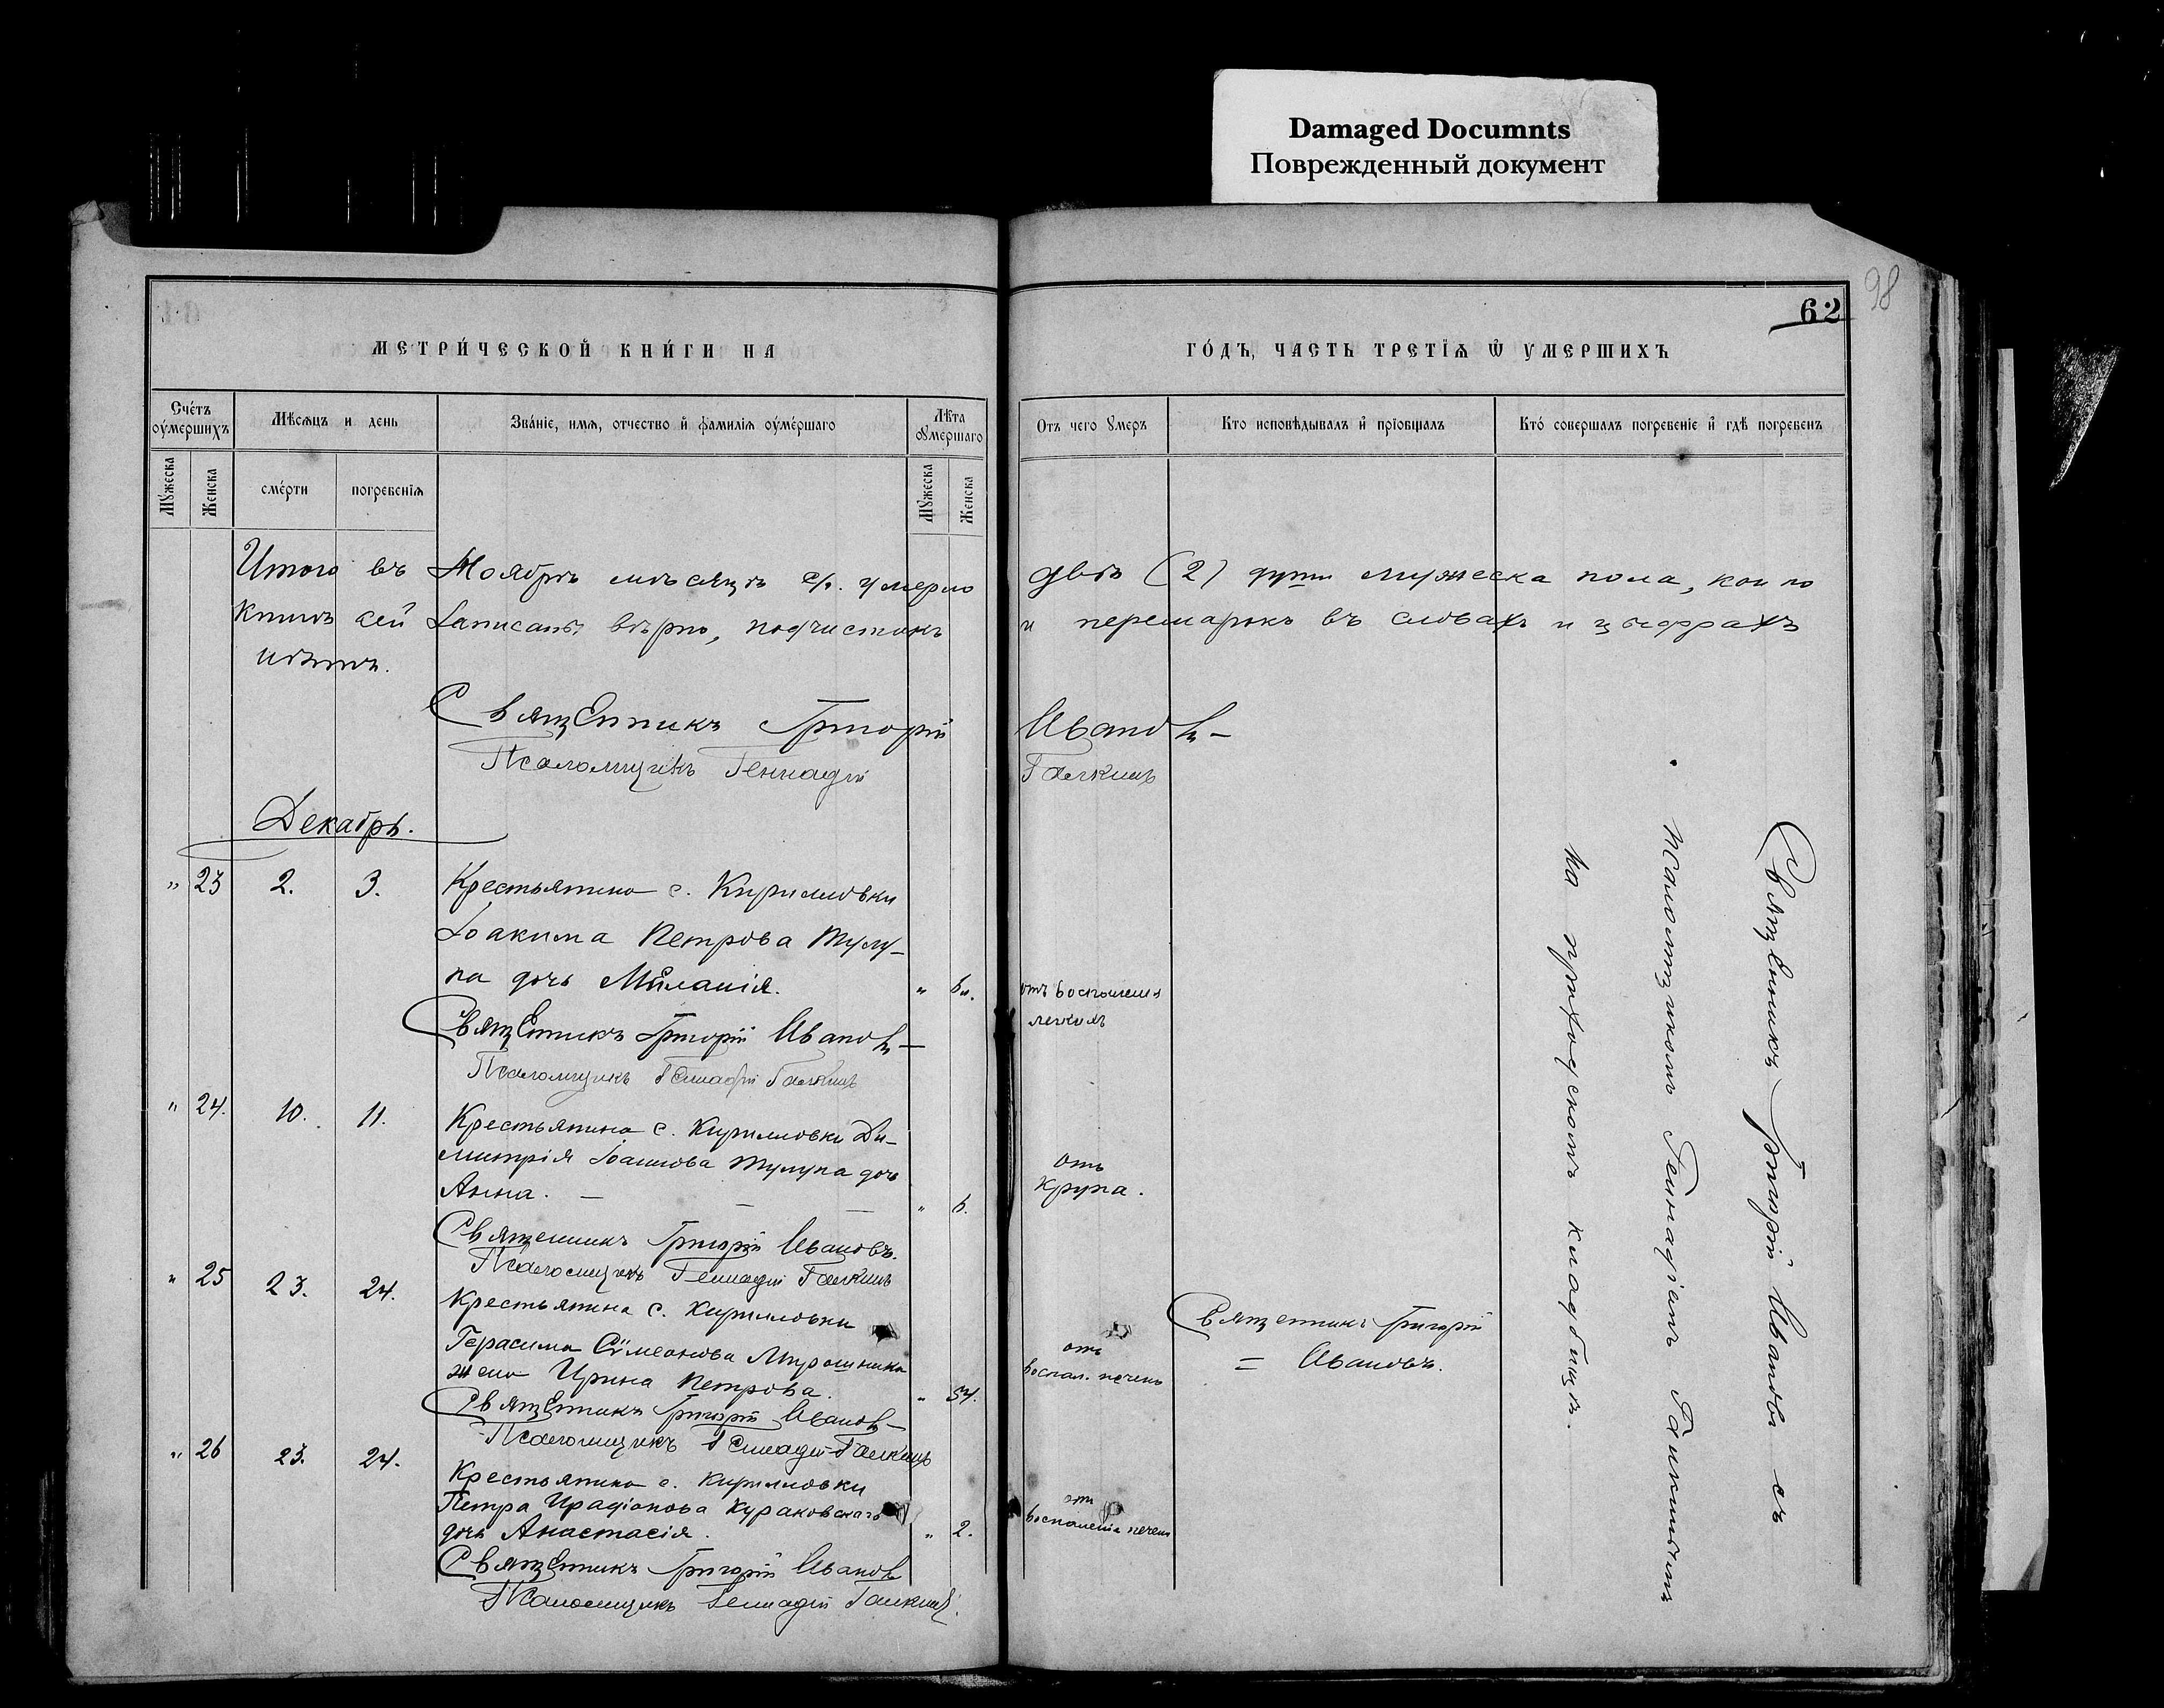 Damaged Documnts
Поврежденный документ
98
62
МЕТРИ́ЧЕСКОЙ КНИ́ГИ НА
ГО́ДЪ, ЧАСТЬ ТРЕТІѦ Ѿ УМЕРШИХЪ
Счéтъ оу҆мершихъ
Мѣсяцъ и день
Звáніе, имя, отчество и҆ фамилія оу҆мéршаго
Лѣта оумершаго
Отъ чего умеръ
Кто исповѣдывалъ и҆ прїобщалъ
Ктó совершалъ погребенїе и҆ гдѣ погребенъ
Мужеска
Женска
смéрти
погребенїя
Мужеска
Женска
Итого въ Ноябрѣ мѣсяцѣ с/г. умерло двѣ (2) души мужеска пола, кои по
книгѣ сей записаны вѣрно, подчистокъ и перемарокъ въ словахъ и цыфрахъ
нѣтъ.
Священникъ Григорій Ивановъ
Псаломщикъ Геннадій Галкинъ
Декабрь.
" 23 2. 3. Крестьянина с. Кирилловки
Іоакима Петрова Тулу-
па дочь Меланія. "
отъ воспаленія
легкихъ
Священникъ Григорій Ивановъ
Псаломщикъ Геннадій Галкинъ
" 24. 10. 11. Крестьянина с. Кирилловки Ди-
митрія Іоаннова Тулупа дочь
Анна. "
Отъ
крупа.
Священникъ Григорій Ивановъ.
Псаломщикъ Геннадій Галкинъ
" 25 23. 24. Крестьянина с. Кирилловки
Герасима Сѵмеонова Мирошника
жена Ирина Петрова. " 54.
отъ
воспал. печени
Священникъ Григорій
= Ивановъ.
Священникъ Григорій Ивановъ
Псаломщикъ Геннадій Галкинъ
" 26 23. 24. Крестьянина с. Кирилловки
Петра Иродіонова Кураковскаго
дочь Анастасія. " 2.
отъ
воспаленія печени
Священникъ Григорій Ивановъ
Псаломщикъ Геннадій Галкинъ.
Священникъ Григорій Ивановъ съ
псаломщикомъ Геннадіемъ Галкинымъ
на приходскомъ кладбищѣ.